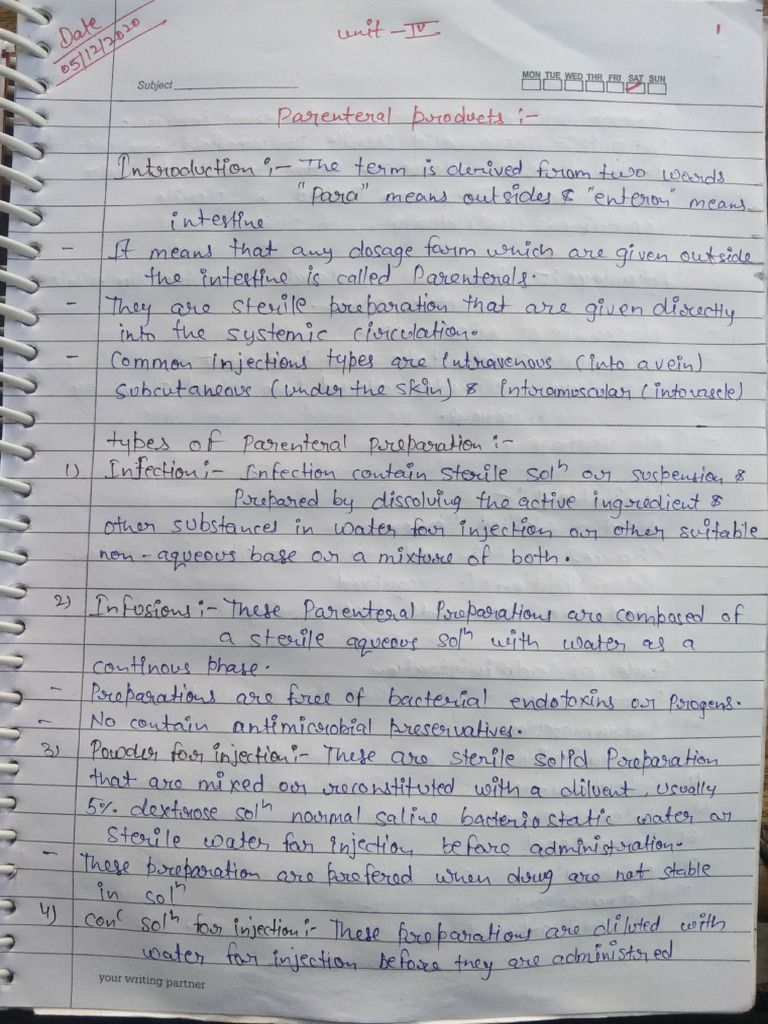 Date
05/12/2020
unit - IV
1
Subject
MON TUE WED THR FRI SAT SUN
Parenteral products :-
Introduction :- The term is derived from two words
"Para" means outsides & "enteron" means
intestine
- It means that any dosage form which are given outside
the intestine is called Parenterals.
- They are sterile preparation that are given directly
into the systemic circulation.
- Common injections types are intravenous (into a vein)
subcutaneous (under the skin) & Intramuscular (into vascle)
types of Parenteral preparation :-
1) Infection :- Infection contain sterile solⁿ or suspension &
Prepared by dissolving the active ingredient &
other substances in water for injection or other suitable
non-aqueous base or a mixture of both.
2) Infusions :- These Parenteral Preparations are composed of
a sterile aqueous solⁿ with water as a
continous phase.
- Preparations are free of bacterial endotoxins or Progens.
- No contain antimicrobial preservatives.
3) Powder for injection :- These are sterile solid Preparation
that are mixed or reconstituted with a diluent, usually
5% dextrose solⁿ normal saline bacterio static water or
sterile water for injection before administration.
- These preparation are prefered when drug are not stable
in solⁿ
4) conᶜ solⁿ for injection :- These preparations are diluted with
water for injection before they are administred
your writing partner